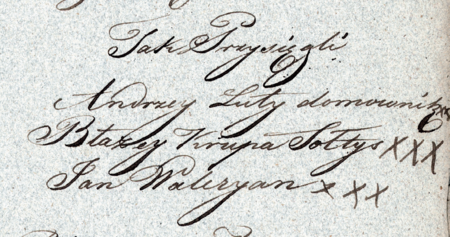 Tak Przysięgli
Andrzey Luty domownik xx
Błażey Krupa Sołtys XXX
Jan Waleryan xxx